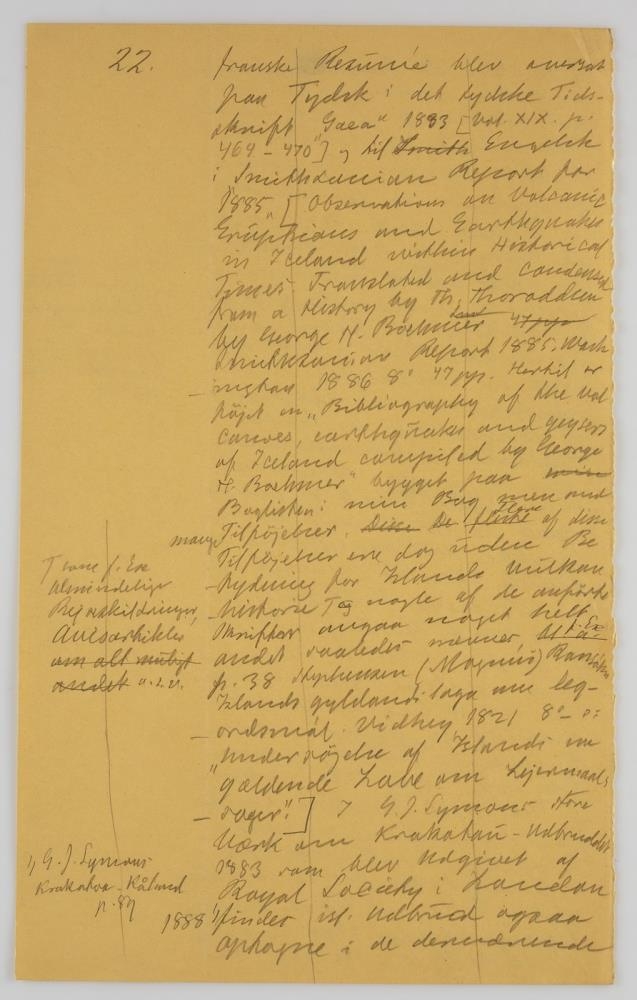 22.
franske Resumé blev oversat
paa Tydsk i det tydske Tids-
skrift "Gaea" 1883 [Vol. XIX. p.
464 - 470] og til Smith Engelsk
i Smithsonian Report for
1885, [Observations on Volcanic
Eruptions and Earthquakes
in Iceland within Historical
Times Translated and condensed
from a History by Th. Thoroddsen
by George H. Boehmer 47 pp
Smithsonian Report 1885. Wash
- ington 1886 8° 47 pp. Hertil er
föjet en "Bibliography of the Vol
canoes, earthquakes and geysers
of Iceland compiled by George
H. Boehmer" bygget paa min
Boglisten i min Bog men med
mange Tilföjelser. Disse De fleste Flere af disse
Tilföjelser ere dog uden Be
- tydning for Islands Vulkan
- historie og nogle af de anförte
Skrifter angaa noget helt
andet saaledes nævner f. Ex.
p. 38 Stephensen (Magnús)
Islands gyldandi laga um leg-
- ordsmál. Videy 1821 8° - o:
"Undersögelse af Islands nu
gældende Love om Lejermaals
- sager".] I G. J. Symons store
Værk om Krakatau-Udbruddet
1883 som blev udgivet af
Royal Society i London
1888 findes isl. Udbrud ogsaa
optagne i de
T
almindelige
Rejseskildringer,
Avisartikler
om alt muligt
andet o.s.v.
1) G. J. Symons
Krakatoa
p. 89